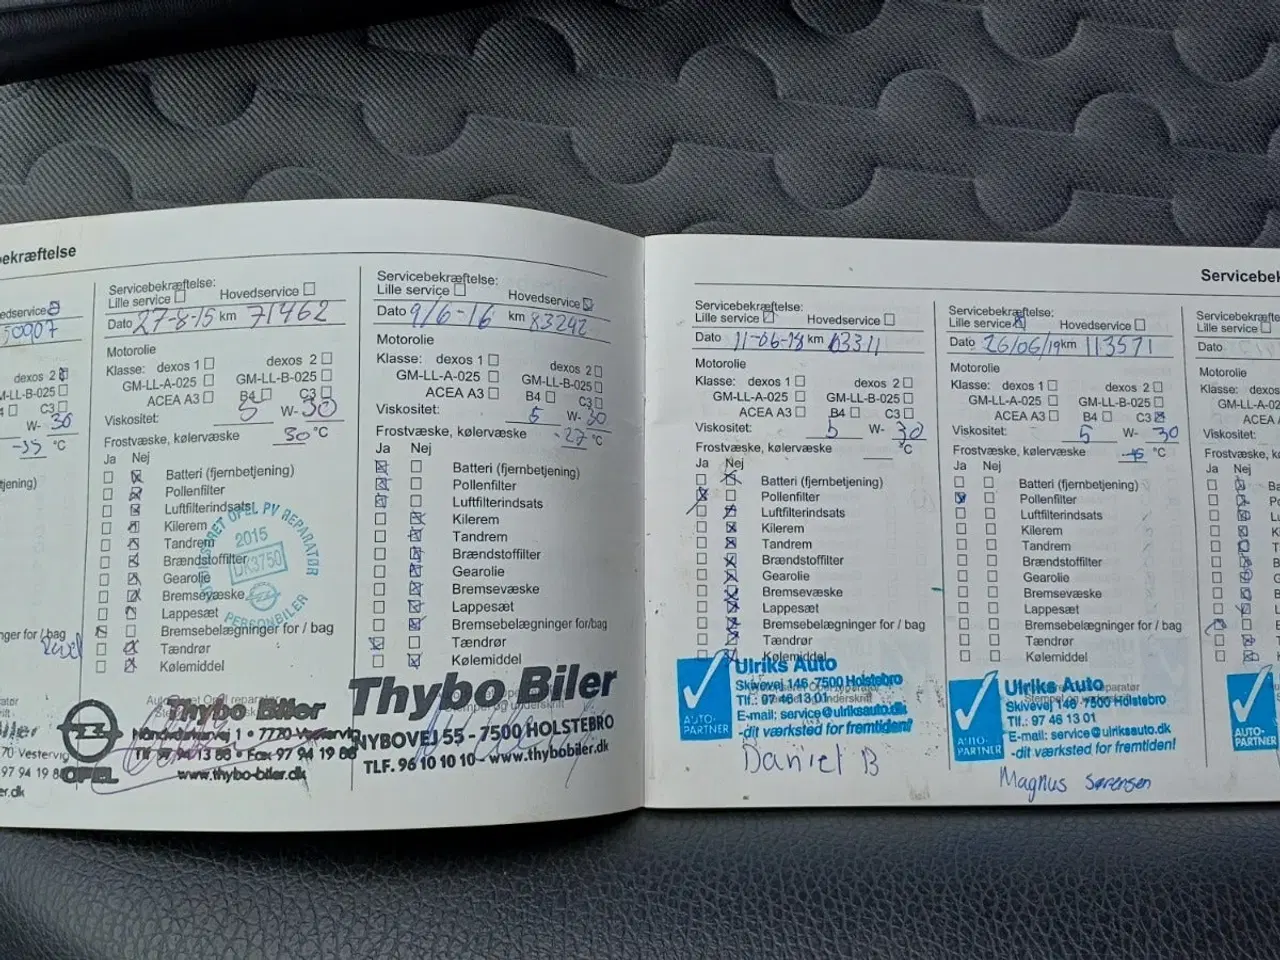 bekræftelse
edservice
50907
dexos 2
M-LL-B-025
C3
W- 30
-35 °C
ning)
nger for / bag
70 Vestervig
97 94 19 8
er.dk
Servicebekræftelse:
Lille service Hovedservice
Dato 27-8-15 km 71462
Motorolie
Klasse: dexos 1 dexos 2
GM-LL-A-025 GM-LL-B-025
ACEA A3 B4 C3
Viskositet: 5 W- 30
Frostvæske, kølervæske 30 °C
Ja Nej
Batteri (fjernbetjening)
Pollenfilter
Luftfilterindsats
Kilerem
Tandrem
Brændstoffilter
Gearolie
Bremsevæske
Lappesæt
Bremsebelægninger for / bag
Tændrør
Kølemiddel
OPEL PV REPARATØR
2015
DK3750
PERSONBILER
OPEL
Thybo Biler
1 • 7770 Vestervig
Tlf 97 94 13 88 • Fax 97 94 19 88
www.thybo-biler.dk
Servicebekræftelse:
Lille service Hovedservice
Dato 9/6-16 km 83242
Motorolie
Klasse: dexos 1 dexos 2
GM-LL-A-025 GM-LL-B-025
ACEA A3 B4 C3
Viskositet: 5 W- 30
Frostvæske, kølervæske -27 °C
Ja Nej
Batteri (fjernbetjening)
Pollenfilter
Luftfilterindsats
Kilerem
Tandrem
Brændstoffilter
Gearolie
Bremsevæske
Lappesæt
Bremsebelægninger for/bag
Tændrør
Kølemiddel
Thybo Biler
NYBOVEJ 55 - 7500 HOLSTEBRO
TLF. 96 10 10 10 - www.thybobiler.dk
Servicebek
Servicebekræftelse:
Lille service Hovedservice
Dato 11-06-18 km
Motorolie
Klasse: dexos 1 dexos 2
GM-LL-A-025 GM-LL-B-025
ACEA A3 B4 C3
Viskositet: 5 W- 30
Frostvæske, kølervæske °C
Ja Nej
Batteri (fjernbetjening)
Pollenfilter
Luftfilterindsats
Kilerem
Tandrem
Brændstoffilter
Gearolie
Bremsevæske
Lappesæt
Bremsebelægninger for / bag
Tændrør
Kølemiddel
AUTO-
PARTNER
Ulriks Auto
Skivevej 146 · 7500 Holstebro
Tlf.: 97 46 13 01
E-mail: service@ulriksauto.dk
-dit værksted for fremtiden!
Daniel B
Servicebekræftelse:
Lille service Hovedservice
Dato 26/06/19 km 113571
Motorolie
Klasse: dexos 1 dexos 2
GM-LL-A-025 GM-LL-B-025
ACEA A3 B4 C3
Viskositet: 5 W- 30
Frostvæske, kølervæske °C
Ja Nej
Batteri (fjernbetjening)
Pollenfilter
Luftfilterindsats
Kilerem
Tandrem
Brændstoffilter
Gearolie
Bremsevæske
Lappesæt
Bremsebelægninger for / bag
Tændrør
Kølemiddel
AUTO-
PARTNER
Ulriks Auto
Skivevej 146 · 7500 Holstebro
Tlf.: 97 46 13 01
E-mail: service@ulriksauto.dk
-dit værksted for fremtiden!
Magnus Sørensen
Servicebekræft
Lille service
Dato
Motorolie
Klasse: dexos
GM-LL-A-02
ACEA A
Viskositet:
Frostvæske, kø
Ja Nej
AUTO-
PARTNER